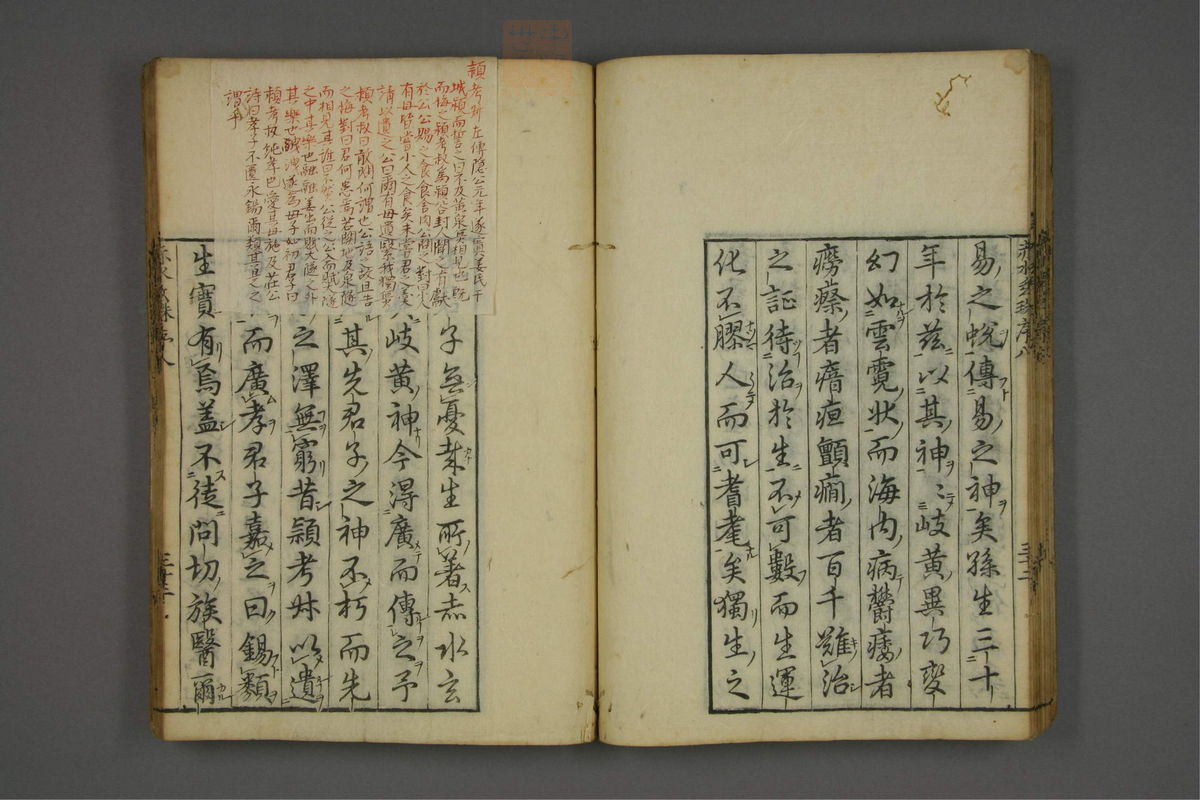 易之蛻傳易之神矣孫生三十
年於茲以其神〻岐黃異巧變
幻如雲霓狀而海內病欝痿者
癆瘵者瘖疸顫癇者百千難治
之証待治於生不可數而生運
化不膠人而可耆耄矣獨生之
頴考叔左傳隐公元年遂寘姜氏于
城頴而誓之曰不及黃泉無相見也既
而悔之頴考叔為頴谷封人聞之有獻
於公公賜之食食舍肉公問之對曰小人
有母皆嘗小人之食矣未嘗君之羹
請以遺之公曰爾有母遺繄我獨無
頴考叔曰敢問何謂也公語之故且告
之悔對曰君何患焉若闕地及泉隧
而相見其誰曰不然公從之公入而賦大隧
之中其樂也融融姜出而賦大隧之外
其樂也洩洩遂為母子如初君子曰
頴考叔純孝也愛其母施及莊公
詩曰孝子不匱永錫爾類其是之
謂乎
子無憂哉生所著赤水玄
岐黃神今得廣而傳之予
其先君子之神不朽而先
之澤無窮昔頴考叔以遺
而廣孝君子嘉之曰錫類
生寶有焉盖不徒問切族醫爾